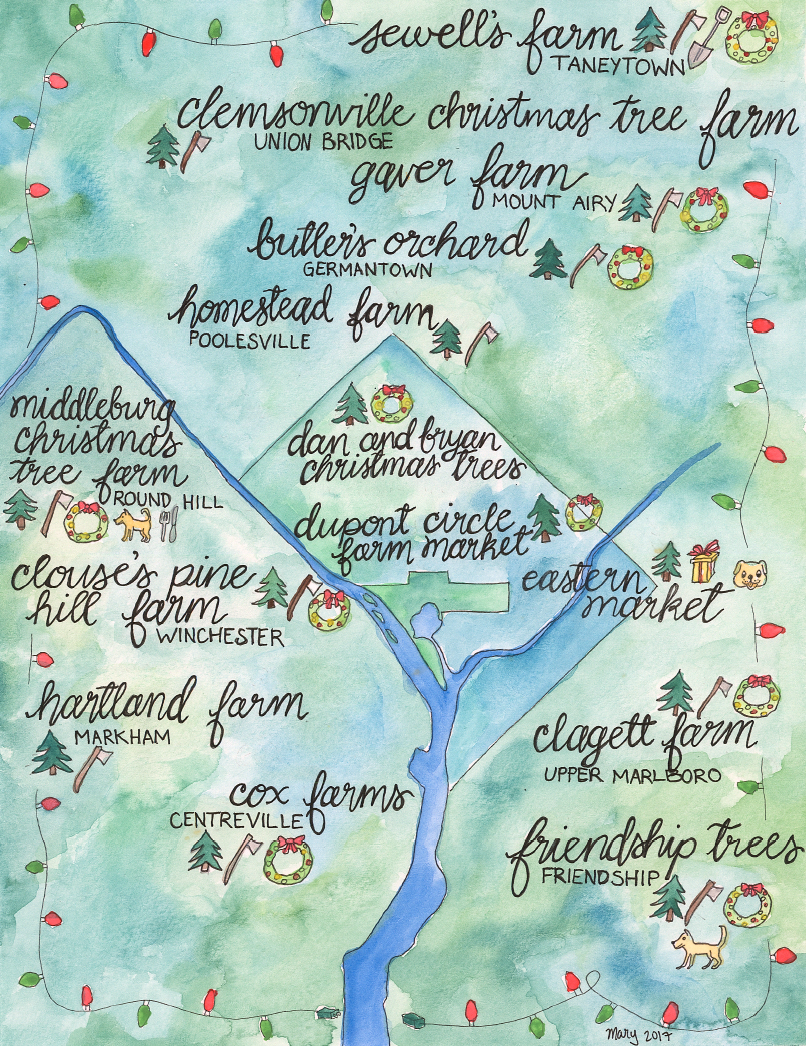 sewell's farm
TANEYTOWN
clemsonville christmas tree farm
UNION BRIDGE
gaver farm
MOUNT AIRY
butler's orchard
GERMANTOWN
homestead farm
POOLESVILLE
middleburg
christmas
tree farm
ROUND HILL
dan and bryan
christmas trees
dupont circle
farm market
clouse's pine
hill farm
WINCHESTER
eastern
market
hartland farm
MARKHAM
clagett farm
UPPER MARLBORO
cox farms
CENTREVILLE
friendship trees
FRIENDSHIP
Mary 2017